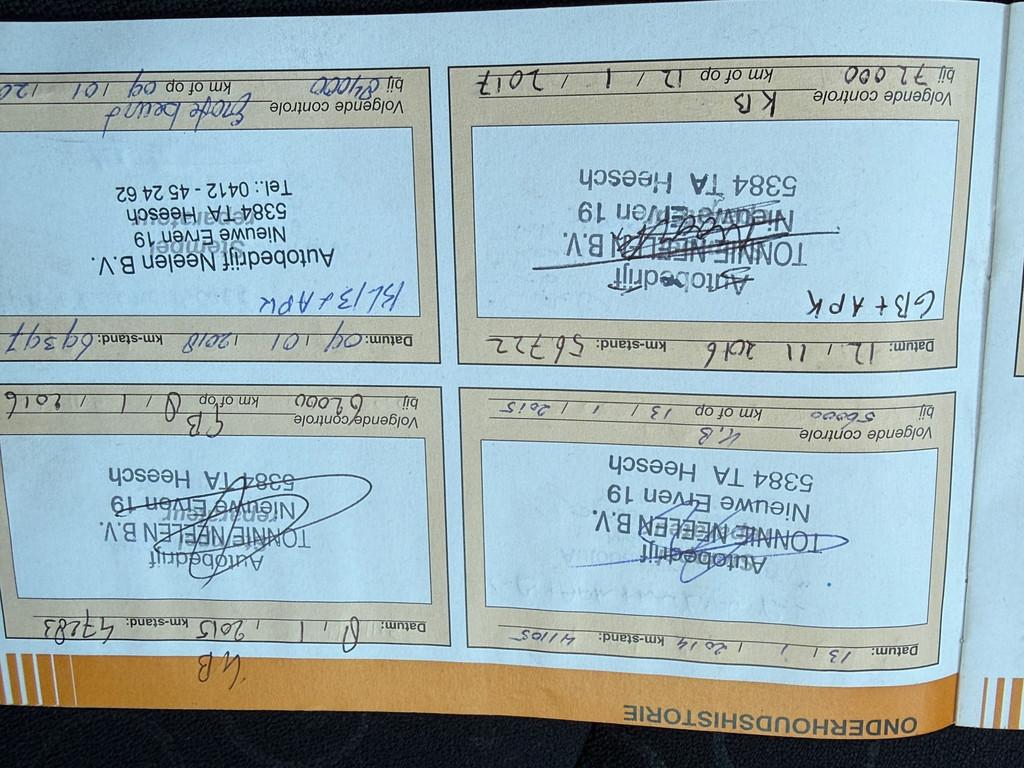 ONDERHOUDSHISTORIE
Datum: 13 / 1 / 2014 km-stand: 41105
Autobedrijf
TONNIE NEELEN B.V.
Nieuwe Erven 19
5384 TA Heesch
Volgende controle K.B
bij 56000 km of op 13 / 1 / 2015
KB
Datum: 8 / 1 / 2015 km-stand: 47283
Autobedrijf
TONNIE NEELEN B.V.
Nieuwe Erven 19
5384 TA Heesch
Volgende controle GB
bij 62000 km of op 8 / 1 / 2016
Datum: 12 / 11 2016 km-stand: 56722
GB + APK
Autobedrijf
TONNIE NEELEN B.V.
Nieuwe Erven 19
5384 TA Heesch
Volgende controle KB
bij 72000 km of op 12 / 1 / 2017
Datum: 09 / 01 / 2018 km-stand: 69397
KLB + APK
Stempel
reparateur
Autobedrijf Neelen B.V.
Nieuwe Erven 19
5384 TA Heesch
Tel.: 0412 - 45 24 62
Volgende controle Grote beurt
bij 84000 km of op 09 / 01 / 20